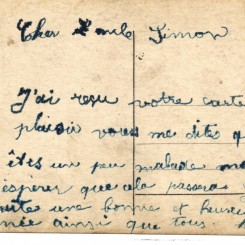 Cher Emile Simon
J'ai reçu votre carte
plaisir vous me dites q
êtes un peu malade ma
espérer que cela passera
une bonne et heureu
née ainsi que tous